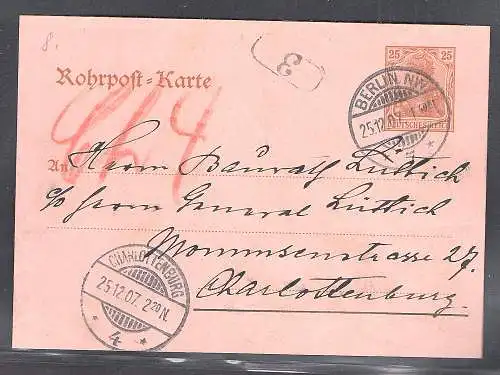 8.
Rohrpost-Karte
3
25 25
DEUTSCHES REICH
BERLIN, NW.
25.12.07.
An
Ch 4
Herrn Baurath Lüttich
c/o Herrn General Lüttich
Mommsenstrasse 27.
Charlottenburg.
CHARLOTTENBURG
25.12.07. 2 20 N.
* 4 *